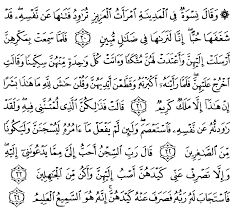 ۞ وَقَالَ نِسْوَةٌ فِى ٱلْمَدِينَةِ ٱمْرَأَتُ ٱلْعَزِيزِ تُرَٰوِدُ فَتَىٰهَا عَن نَّفْسِهِۦ ۖ قَدْ
شَغَفَهَا حُبًّا ۖ إِنَّا لَنَرَىٰهَا فِى ضَلَٰلٍ مُّبِينٍ ٣٠ فَلَمَّا سَمِعَتْ بِمَكْرِهِنَّ
أَرْسَلَتْ إِلَيْهِنَّ وَأَعْتَدَتْ لَهُنَّ مُتَّكَـًٔا وَءَاتَتْ كُلَّ وَٰحِدَةٍ مِّنْهُنَّ سِكِّينًا وَقَالَتِ
ٱخْرُجْ عَلَيْهِنَّ ۖ فَلَمَّا رَأَيْنَهُۥٓ أَكْبَرْنَهُۥ وَقَطَّعْنَ أَيْدِيَهُنَّ وَقُلْنَ حَٰشَ لِلَّهِ مَا هَٰذَا بَشَرًا
إِنْ هَٰذَآ إِلَّا مَلَكٌ كَرِيمٌ ٣١ قَالَتْ فَذَٰلِكُنَّ ٱلَّذِى لُمْتُنَّنِى فِيهِ ۖ وَلَقَدْ
رَٰوَدتُّهُۥ عَن نَّفْسِهِۦ فَٱسْتَعْصَمَ ۖ وَلَئِن لَّمْ يَفْعَلْ مَآ ءَامُرُهُۥ لَيُسْجَنَنَّ وَلَيَكُونًا
مِّنَ ٱلصَّٰغِرِينَ ٣٢ قَالَ رَبِّ ٱلسِّجْنُ أَحَبُّ إِلَىَّ مِمَّا يَدْعُونَنِىٓ إِلَيْهِ ۖ وَإِلَّا
تَصْرِفْ عَنِّى كَيْدَهُنَّ أَصْبُ إِلَيْهِنَّ وَأَكُن مِّنَ ٱلْجَٰهِلِينَ ٣٣
فَٱسْتَجَابَ لَهُۥ رَبُّهُۥ فَصَرَفَ عَنْهُ كَيْدَهُنَّ ۚ إِنَّهُۥ هُوَ ٱلسَّمِيعُ ٱلْعَلِيمُ ٣٤